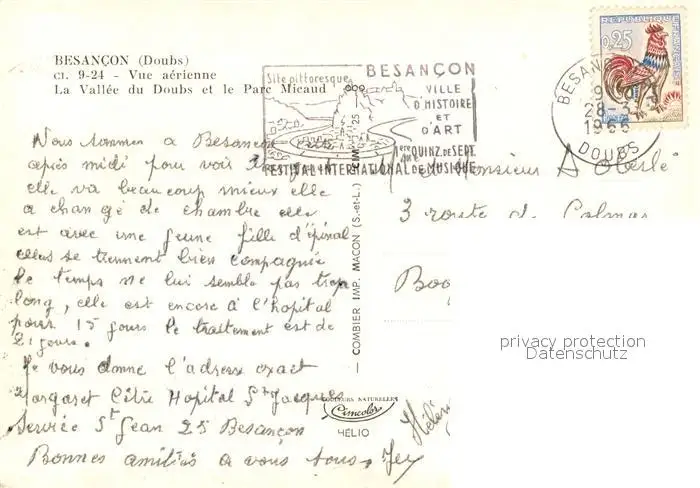 BESANÇON (Doubs)
CI. 9-24 - Vue aérienne
La Vallée du Doubs et le Parc Micaud
Site pittoresque
BESANÇON
VILLE
D'HISTOIRE
ET
D'ART
1ère QUINZ. DE SEPT.
FESTIVAL INTERNATIONAL DE MUSIQUE
REPUBLIQUE FRANÇAISE
0,25
BESANÇON
28-3
1966
DOUBS
Nous sommes a Besançon
après midi pour voir
elle va beaucoup mieux elle
a changé de chambre elle
est avec une jeune fille d'épinal
elles se tiennent bien compagnie
le temps ne lui semble pas trop
long, elle est encore à l'hopital
pour 15 jours le traitement est de
21 jours.
Je vous donne l'adresse exact
Margaret Hopital St Jacques
Service St Jean 25 Besançon
Bonnes amitiés a vous tous.
COMBIER IMP. MACON (S.-et-L.)
COULEURS NATURELLES
Cimcolor
HELIO
Monsieur A
3 route de Colmar
privacy protection
Datenschutz